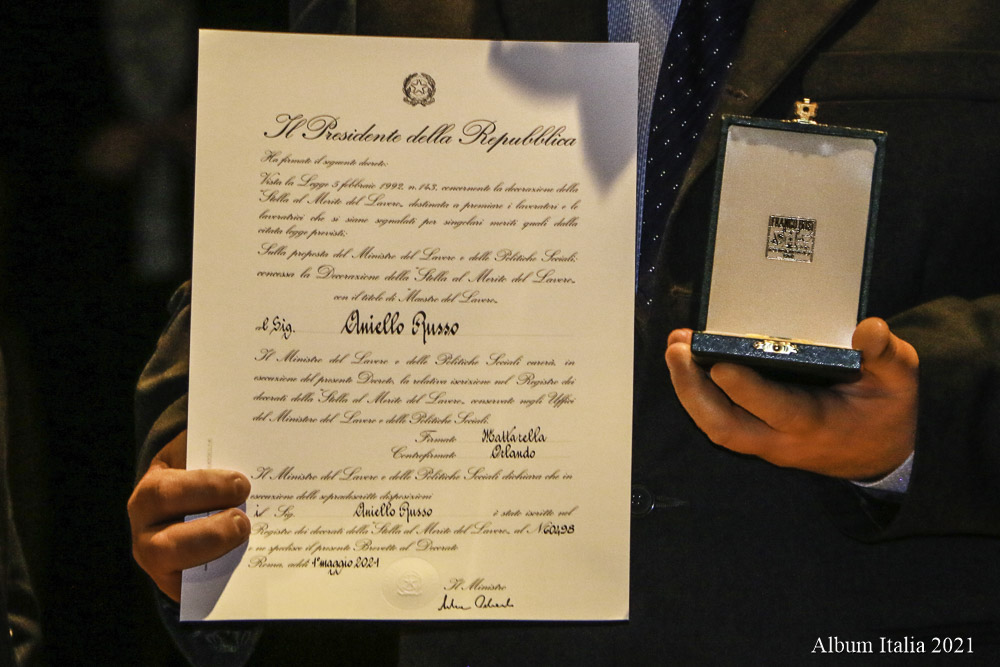 Il Presidente della Repubblica
Ha firmato il seguente decreto
Vista la Legge 5 febbraio 1992, n. 143, concernente la decorazione della
"Stella al Merito del Lavoro", destinata a premiare i lavoratori e le
lavoratrici che si siano segnalati per singolari meriti quali dalla
citata legge previsti;
Sulla proposta del Ministro del Lavoro e delle Politiche Sociali:
concessa la Decorazione della "Stella al Merito del Lavoro"
con il titolo di "Maestro del Lavoro"
al Sig. Aniello Russo
Il Ministro del Lavoro e delle Politiche Sociali curerà, in
esecuzione del presente Decreto, la relativa iscrizione nel Registro dei
decorati della "Stella al Merito del Lavoro" conservato negli Uffici
del Ministero del Lavoro e delle Politiche Sociali.
Firmato Mattarella
Controfirmato Orlando
Il Ministro del Lavoro e delle Politiche Sociali dichiara che in
esecuzione delle sopradescritte disposizioni
il Sig. Aniello Russo è stato iscritto nel
Registro dei decorati della "Stella al Merito del Lavoro" al N.60498
e ne spedisce il presente Brevetto al Decorato
Roma, addì 1° maggio 2021
Il Ministro
Album Italia 2021